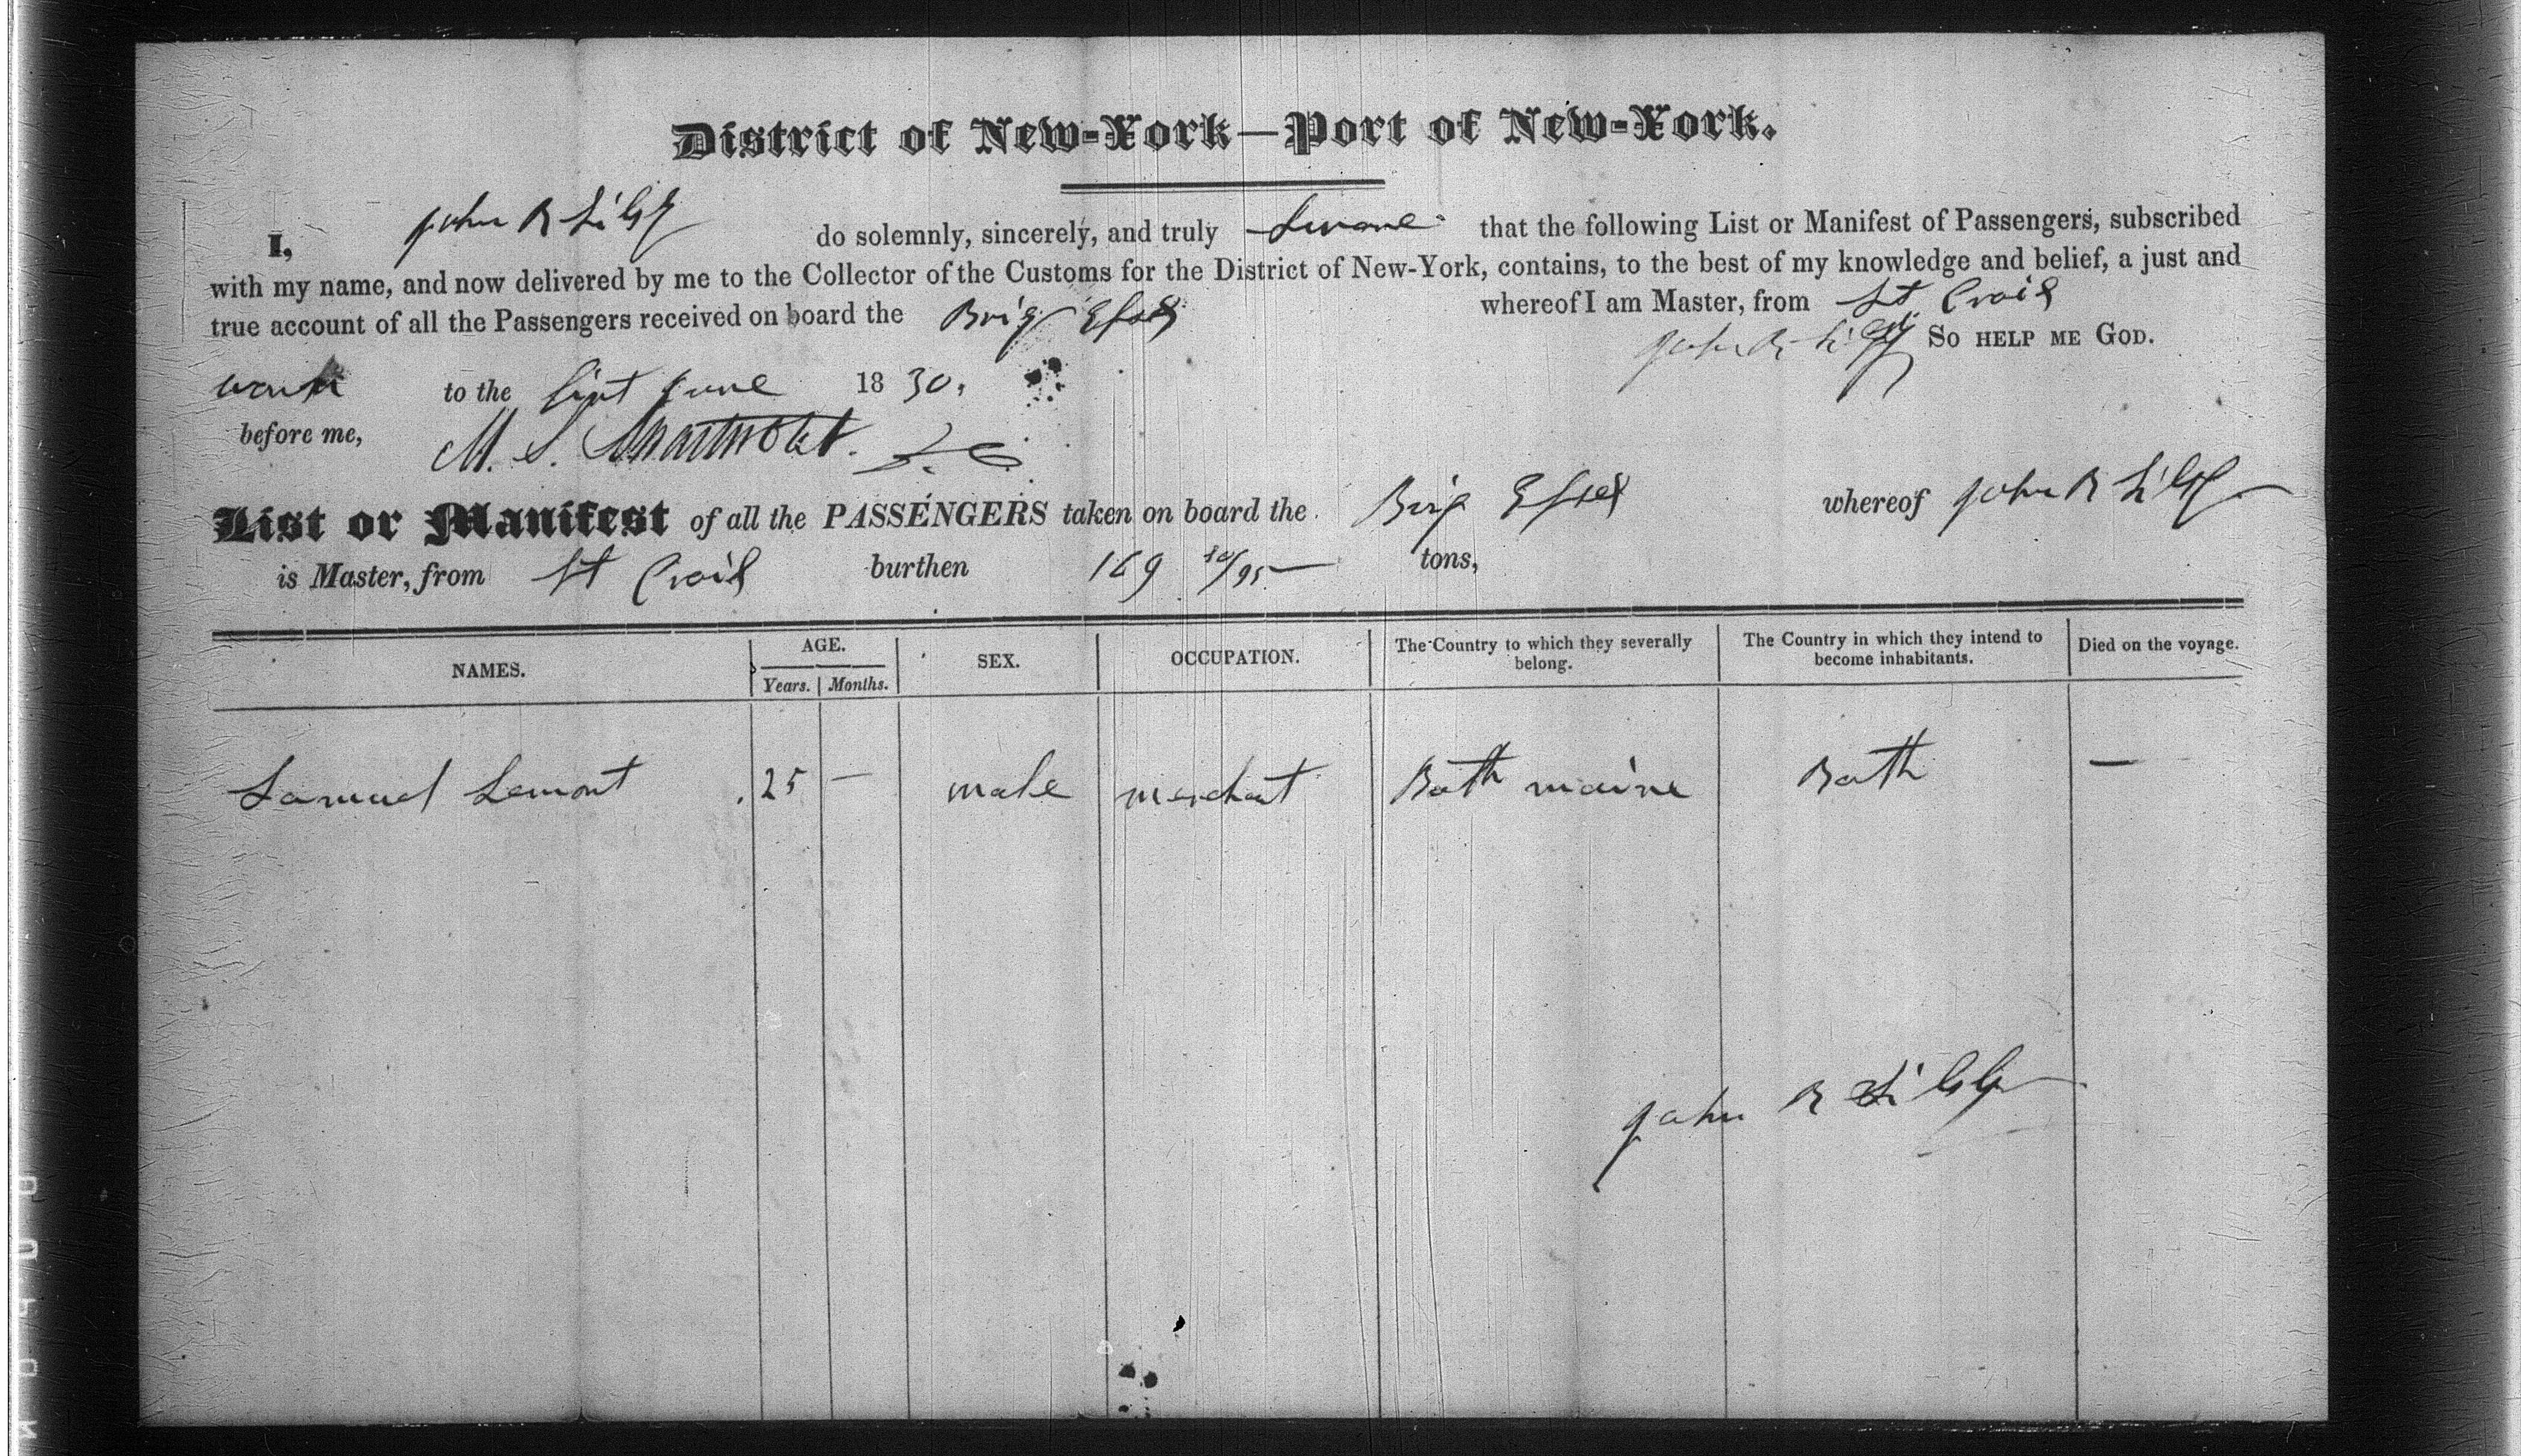 District of New-York—Port of New-York.
I, John R do solemnly, sincerely, and truly Swore that the following List or Manifest of Passengers, subscribed
with my name, and now delivered by me to the Collector of the Customs for the District of New-York, contains, to the best of my knowledge and belief, a just and
true account of all the Passengers received on board the Brig Essex whereof I am Master, from St Croix
John R So HELP ME GOD.
to the first June 1830.
before me, M. S. Swartwout. D. C.
List or Manifest of all the PASSENGERS taken on board the Brig Essex whereof John R
is Master, from St Croix burthen 169 /95 tons,
NAMES. AGE. SEX. OCCUPATION. The Country to which they severally belong. The Country in which they intend to become inhabitants. Died on the voyage.
Years. Months.
Samuel Lemont 25 — male merchant Bath maine Bath —
John R